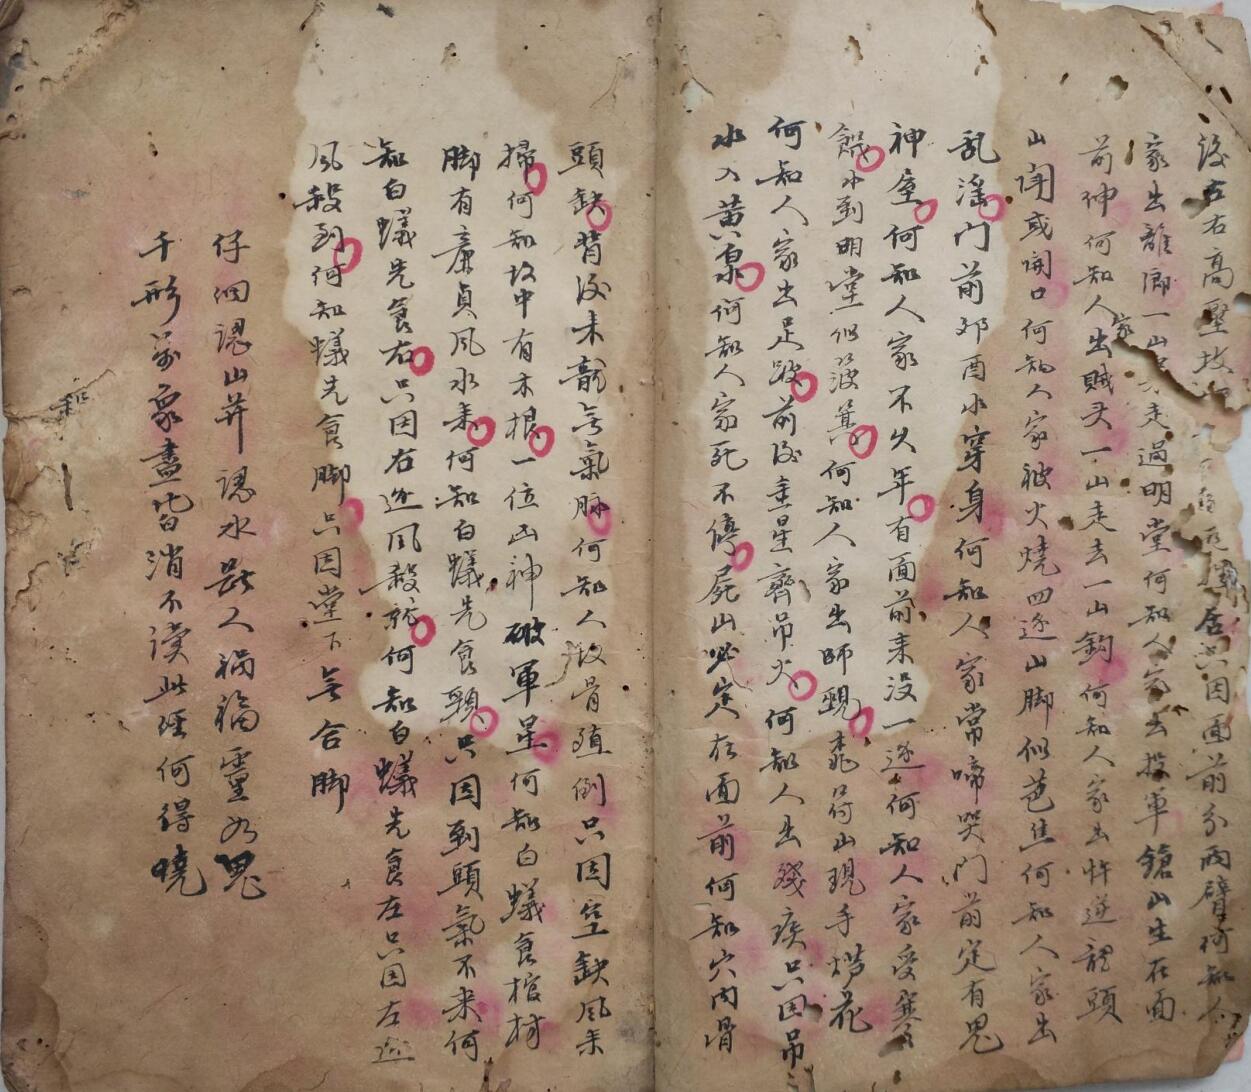 後左右高壓墳
居只因面前分兩臂何知人
家出離鄉一山走過明堂何知人家去投軍鎗山生在面
前伸何知人家出賊子一山走去一山鈎何知人家出忤逆龍頭
山開或開口何知人家被火燒四邊山脚似芭焦何知人家出
乱滛門前卯酉水穿身何知人家常啼哭門前定有鬼
神屋何知人家不久年有面前来没一邊何知人家受寒
餓水到明堂似簸箕何知人家出師覡蕉荷山現手搭花
何知人家出足跛前後主星齊吊火何知人出殘疾只因吊
水入黄泉何知人家死不停屍山必定在面前何知穴内骨
頭缺背後来龍無氣脉何知人墳骨殖倒只因空缺風来
掃何知坟中有木根一位凶神破軍星何知白蟻食棺材
脚有亷貞風水来何知白蟻先食頭只因到頭氣不来何
知白蟻先食右只因右邊風殺就何知白蟻先食左只因左边
風殺到何知蟻先食脚只因堂下無合脚
仔細認山并認水斷人禍福靈如鬼
千形萬象盡皆消不讀此經何得曉